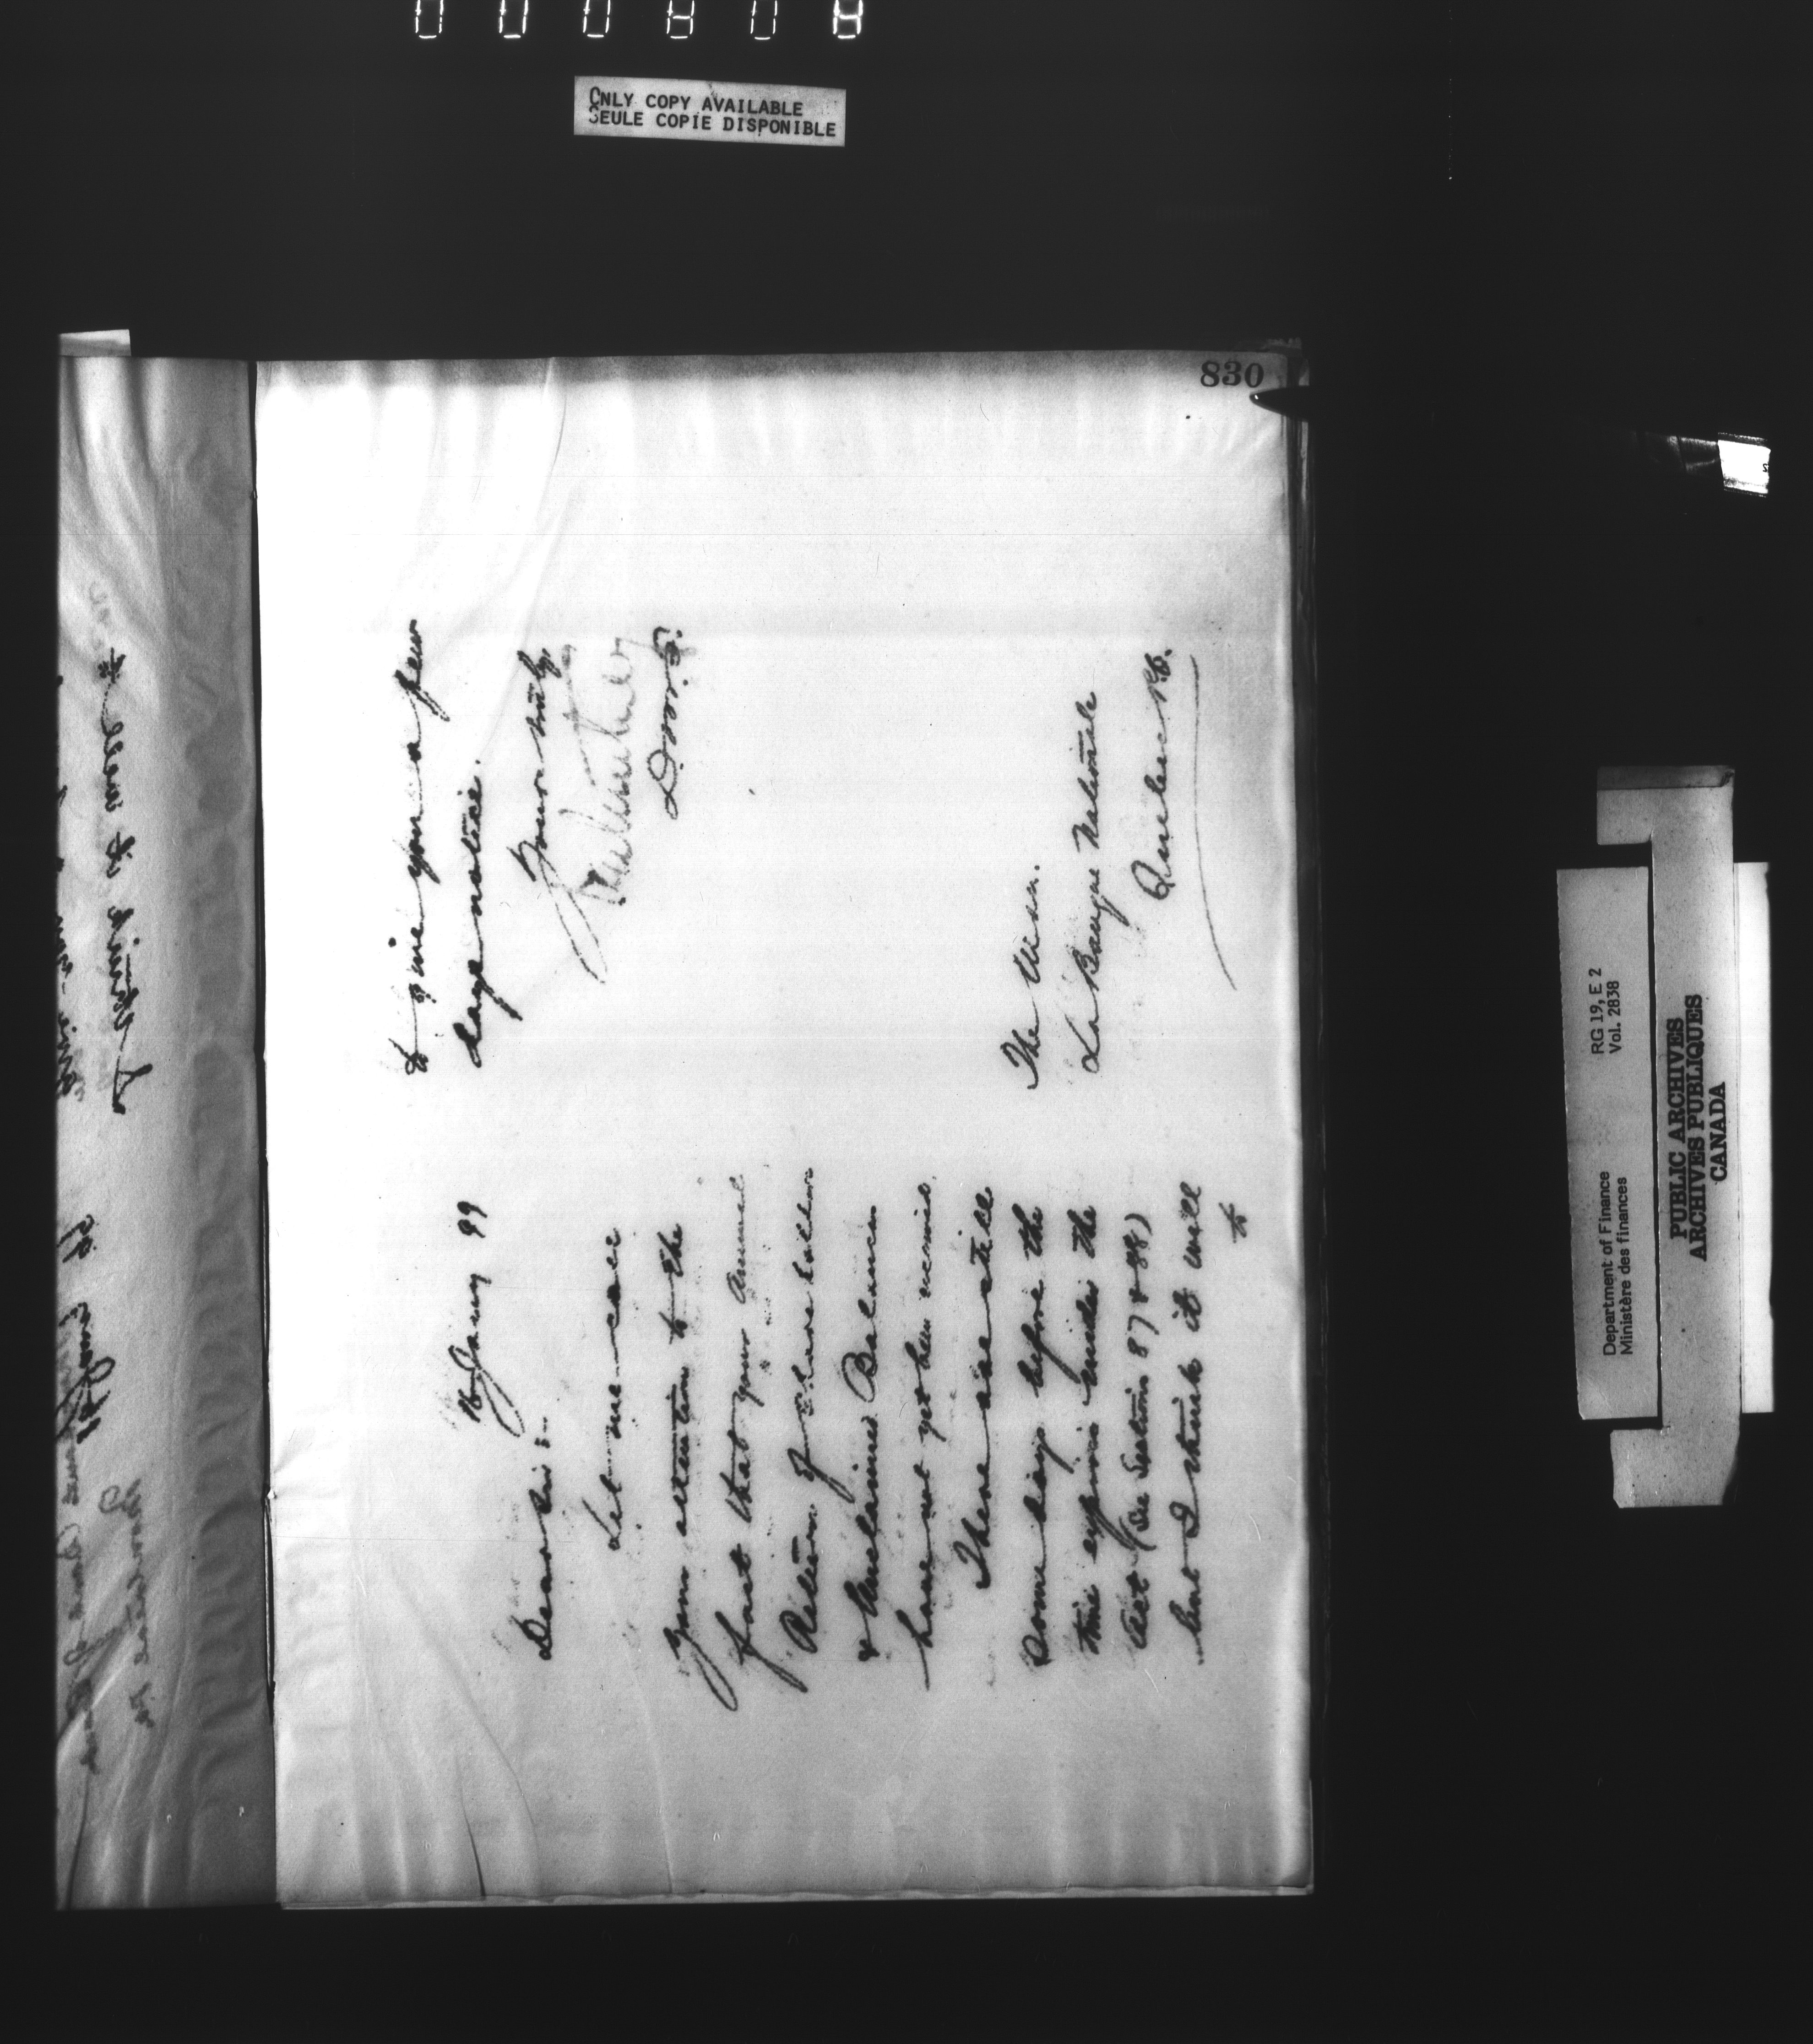 ONLY COPY AVAILABLE
SEULE COPIE DISPONIBLE
830
16 Jany 99
Dear Sir:-
Let me call
your attention to the
fact that your Annual
Return of Shareholders
& Unclaimed Balances
have not yet been received.
There are still
some days before the
time expires under the
Act (See Sections 87 & 88)
but I think it well
to
to give you a few
days notice.
Yours truly,
The Man.
La Banque Nationale
Quebec P.Q.
Department of Finance
Ministère des finances
RG 19, E 2
Vol. 2838
PUBLIC ARCHIVES
ARCHIVES PUBLIQUES
CANADA